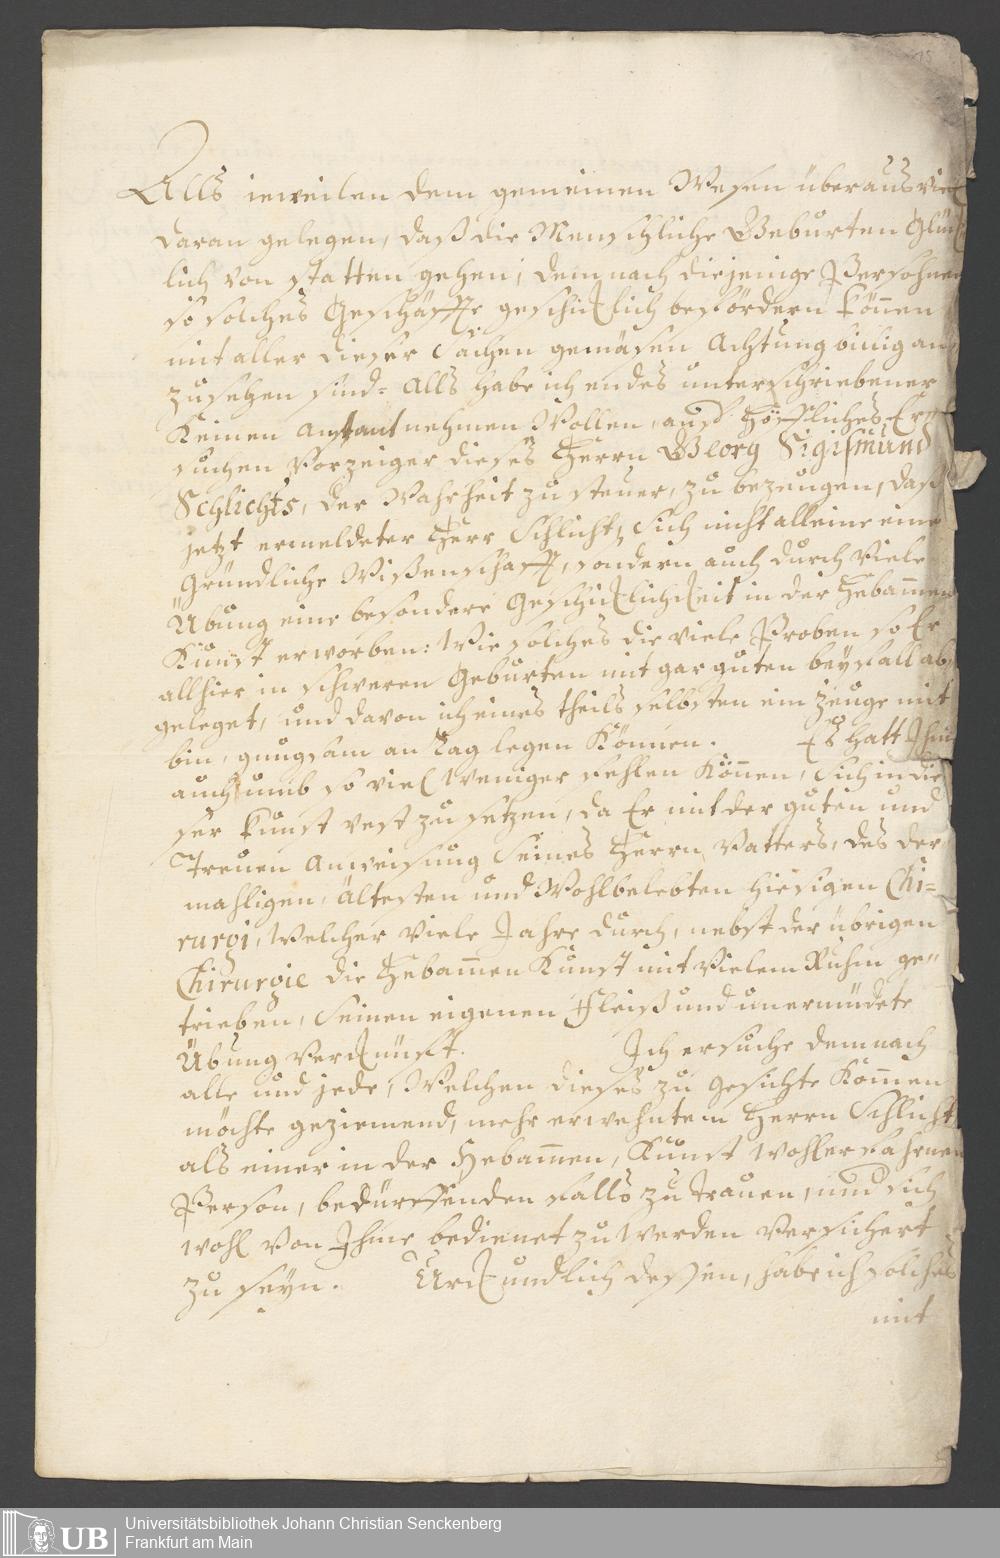 Alls ieweilen dem gemeinen Wesen überaus viel
daran gelegen, daß die Menschliche Geburten Glük
lich von statten gehen; demnach diejenige Persohnen
so solches Geschäffte geschiklich befördern können
mit aller dieser Sachen gemäsen Achtung billig an
zusehen sind. Alls habe ich endes unterschriebener
Keinen anstant nehmen Wollen, auf höffliches Er=
suchen Vorzeiger dieses Herrn Georg Sigismund
Schlichts, der Wahrheit zu steuer, zu bezeugen, daß
jetzt ermeldeter Herr Schlicht, Sich nicht alleine eine
Gründliche Wißenschafft, sondern auch durch Viele
Übung eine besondere Geschiklichkeit in der Hebam̄en
Kunst erworben: Wie solches die viele Proben so Er
allhier in schweren Geburten mit gar guten beyfall ab
geleget, und davon ich eines theils selbsten ein Zeuge mit
bin, gnugsam an Tag legen Können. Es hatt Ihm
auch umb so viel Weniger fehlen Kön̄en, Sich in die
ser Kunst vest zu setzen, da Er mit der guten und
Treuen Anweisung Seines Herrn Vatters, des der
mahligen, ältesten und Wohlbelebten hiesigen Chi=
rurgi, Welcher viele Jahre durch, nebst der übrigen
Chirurgie die Hebam̄en Kunst mit Vielem Ruhm ge=
trieben, Seinen eigenen Fleiß und unermüdete
Übung Verknüpft. Ich ersuche demnach
alle und jede, Welchen dieses zu Gesichte Kom̄en
möchte geziemend, mehr erwehntem Herrn Schlicht
als einer in der Hebam̄en, Kunst Wohlerfahrnen
Person, bedürffenden falls zu trauen, und sich
wohl von Ihme bedienet zu werden Versichert
zu seyn. Urkundlich deßen, habe ich solches
mit
UB
Universitätsbibliothek Johann Christian Senckenberg
Frankfurt am Main